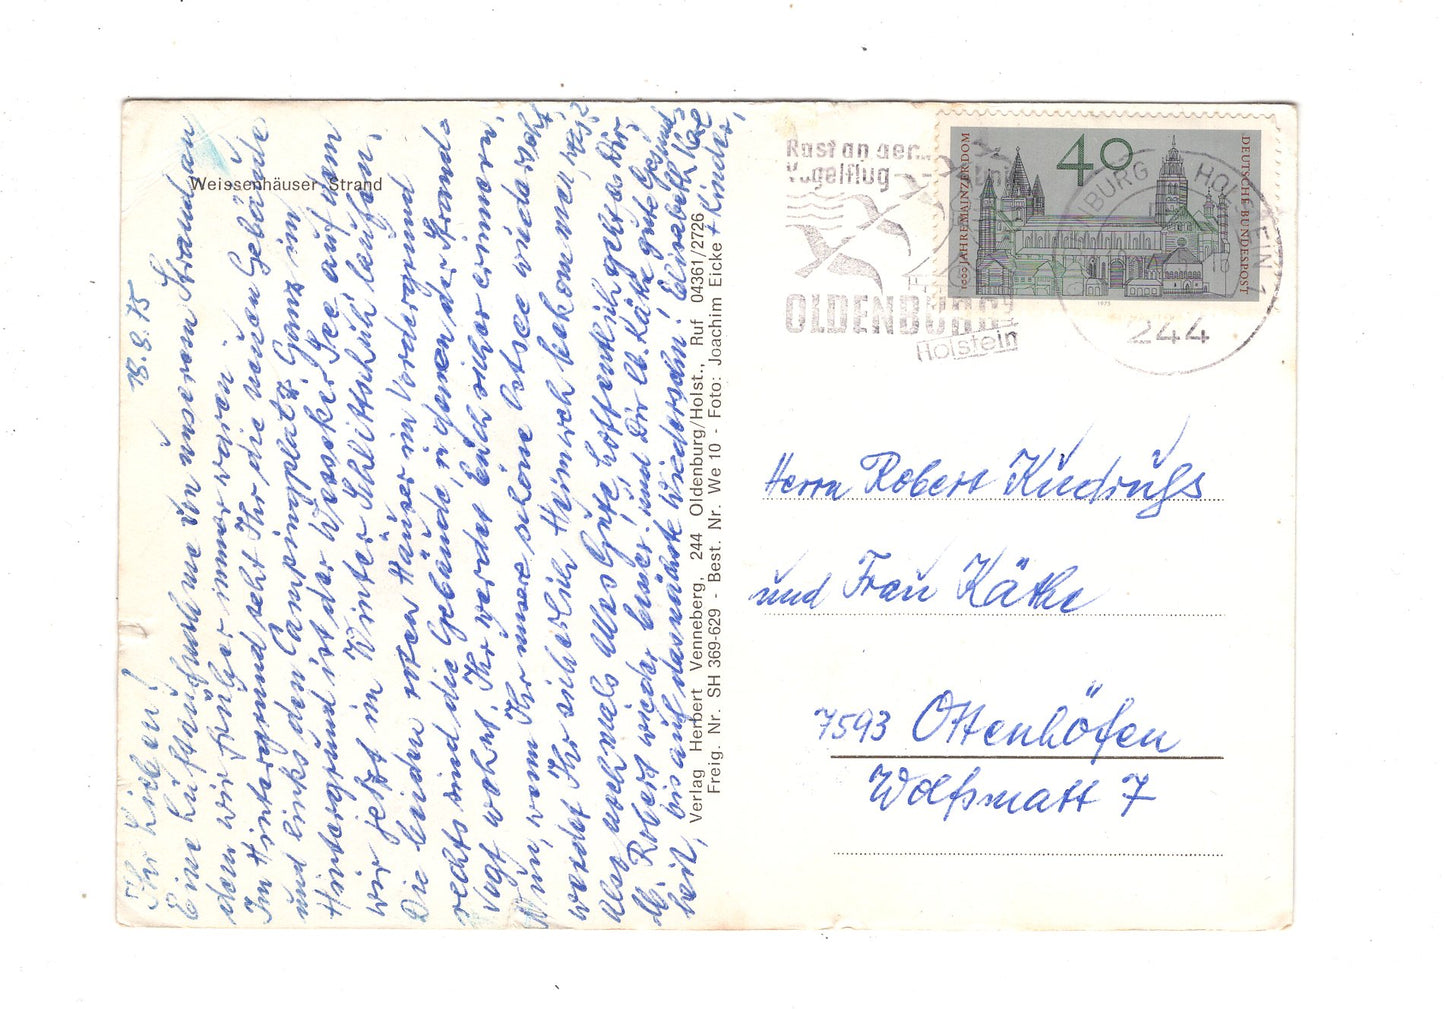 Weissenhäuser Strand
18.8.75
Ihr Lieben!
Eine Luftaufnahme von unserem Strand an
dem wir früher immer waren.
Im Hintergrund seht Ihr die neuen Gebäude
und links den Campingplatz. Ganz im
Hintergrund ist der Wesseker See auf dem
wir jetzt im Winter Schlittschuh laufen.
Die beiden roten Häuser im Vordergrund
rechts sind die Gebäude, in denen der Strand-
vogt wohnt. Ihr werdet Euch sicher erinnern.
Nun, wenn Ihr unsere schöne Ostsee wiederseht,
werdet Ihr sicherlich Heimweh bekommen, was?
Also nochmals Alles Gute, hoffentlich geht es Dir
lb. Robert wieder besser! und Dir lb. Käthe gute Gesund-
heit, bis auf das nächste Wiedersehn! Elisabeth Karl
+ Kinder,
Verlag Herbert Venneberg, 244 Oldenburg/Holst., Ruf 04361/2726
Freig. Nr. SH 369-629 - Best. Nr. We 10 - Foto: Joachim Eicke
Rast an der
Vogelflug
OLDENBURG
Holstein
40
1000 JAHRE MAINZER DOM
DEUTSCHE BUNDESPOST
1975
BURG HOLSTEIN 1
244
Herrn Robert Kudrutzs
und Frau Käthe
7593 Ottenhöfen
Wolfsmatt 7